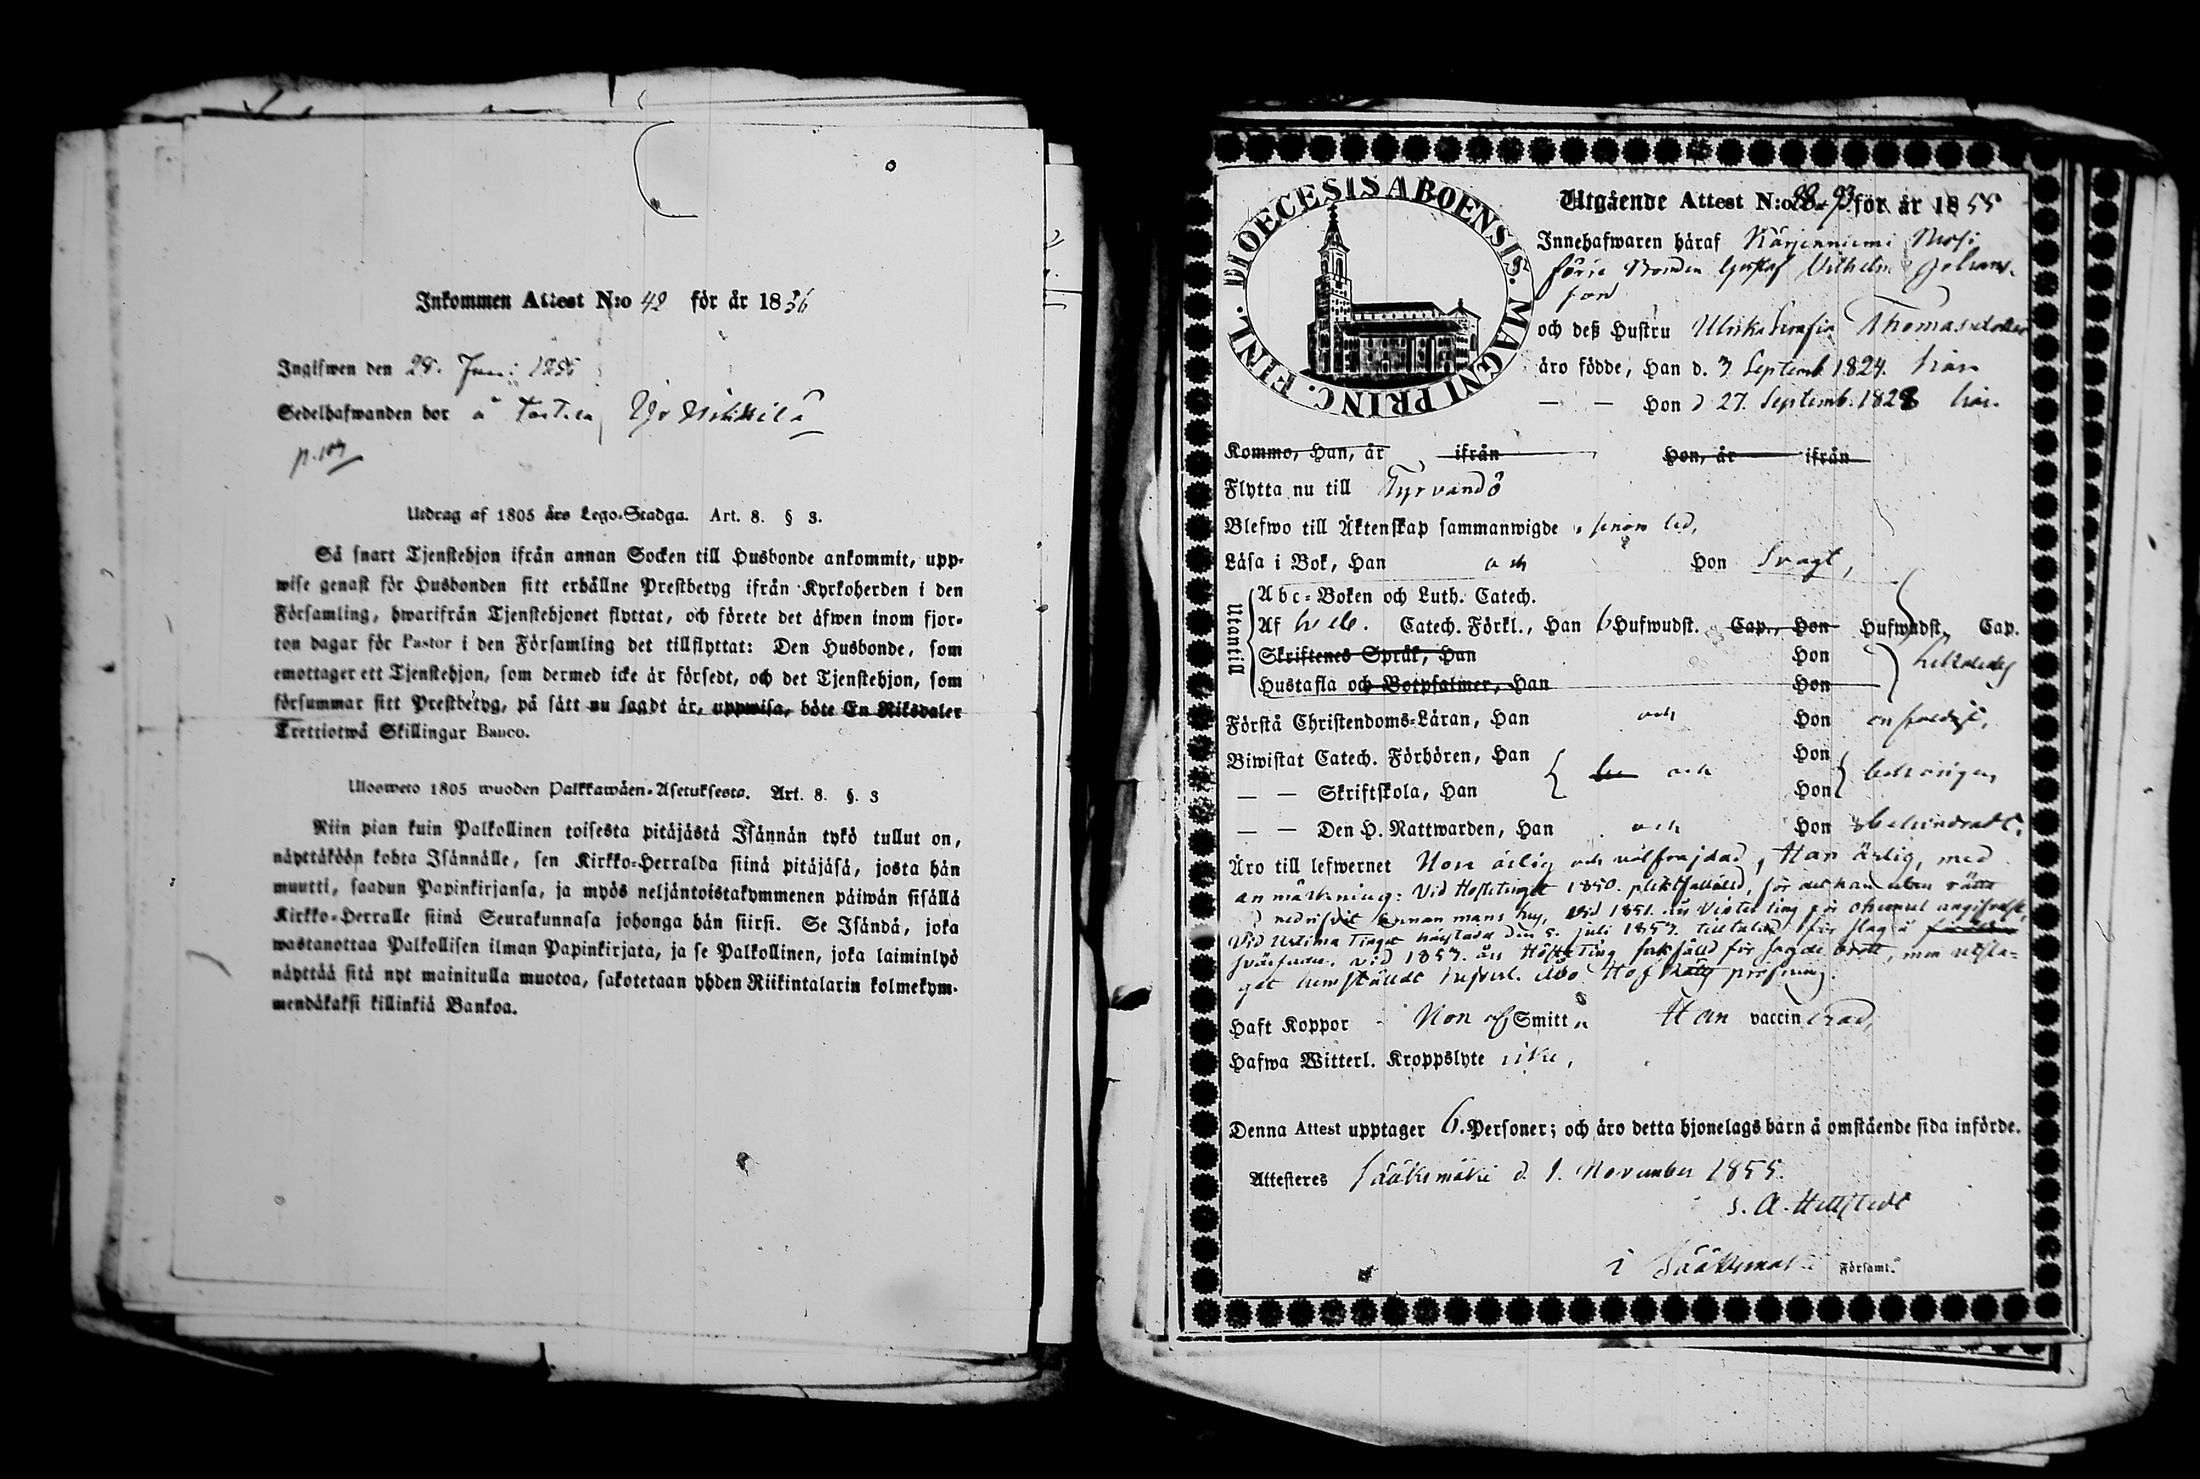 Inkommen Attest N:o 42 för år 1856
Inglfwen den 28. Juni 1856
Sedelhafwanden bor å
Utdrag af 1805 års Lego-Stadga. Art. 8. § 3.
Så snart Tjenstehjon ifrån annan Socken till Husbonde ankommit, upp-
wise genast för Husbonden sitt erhållne Prestbetyg ifrån Kyrkoherden i den
Församling, hwarifrån Tjenstehjonet flyttat, och förete det äfwen inom fjor-
ton dagar för Pastor i den Församling det tillflyttat: Den Husbonde, som
emottager ett Tjenstehjon, som dermed icke är försedt, och det Tjenstehjon, som
försummar sitt Prestbetyg, på sätt nu sagdt är, uppwisa, böte En Riksdaler
Trettiotwå Skillingar Banco.
Ulosweto 1805 wuoden Palkkawäen-Asetuksesta. Art. 8. §. 3
Niin pian kuin Palkollinen toisesta pitäjästä Isännän tykö tullut on,
näyttäköön kohta Isännälle, sen Kirkko-Herralda siinä pitäjäsä, josta hän
muutti, saadun Papinkirjansa, ja myös neljäntoistakymmenen päiwän sisällä
Kirkko-Herralle siinä Seurakunnasa johonga hän siirsi. Se Isändä, joka
wastanottaa Palkollisen ilman Papinkirjata, ja se Palkollinen, joka laiminlyö
näyttää sitä nyt mainitulla muotoa, sakotetaan yhden Riikintalarin kolmekym-
mendäkaksi killinkiä Bankoa.
DIOECESIS ABOENSIS. MAGNI PRINC. FINL.
Utgående Attest N:o 88-93 för år 1855
Innehafwaren häraf Kärjenniemi
förre Bonden Gustaf Vilhelm Johans-
son
och deß Hustru Ulrika Sofia Thomasdotter
äro födde, Han d. 3 Septemb. 1824. här
— — Hon d 27. Septemb. 1828 här.
Kommo, Han, år ifrån Hon, år ifrån
Flytta nu till Tyrvandö
Blefwo till Äktenskap sammanwigde
Läsa i Bok, Han och Hon svagt,
Utantill
Abc-Boken och Luth. Catech.
Af hela. Catech. Förkl., Han 6 Hufwudst. Cap., Hon Hufwudst, Cap.
Skriftenes Språk, Han Hon
Hustafla och Botpsalmer, Han Hon
Förstå Christendoms-Läran, Han och Hon enfaldigt,
Biwistat Catech. Förhören, Han Hon
— — Skriftskola, Han och Hon
— — Den H. Nattwarden, Han och Hon obehindradt.
Äro till lefwernet Hon ärlig och välfrejdad, Han ärlig, med
anmärkning: Vid Hösttinget 1850. pliktfälld, för det han utan rätt
nedrifvit annan mans hus, Vid 1851. års Vinterting för angifvelse,
Vid Urtima Tinget den 5. Juli 1853. för slag å
vid 1853. års Höstting sakfälld för sagde brott, men utsla-
get hemställdt Åbo Hof Rätts pröfning.
Haft Koppor Hon af Smitt. Han vaccinerad,
Hafwa Witterl. Kroppslyte icke,
Denna Attest upptager 6. Personer; och äro detta hjonelags barn å omstående sida införde.
Attesteres Sääksmäki d. 1. November 1855.
S. A. Hellstedt
i Sääksmäki Församl.